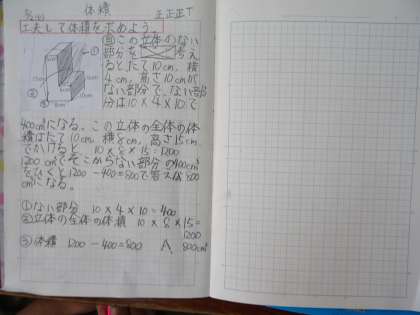 体積
正正正T
工夫して体積を求めよう。
自この立体のない
部分を 考え
るとたて10cm、横
4cm、高さ10cmが
ない部分で、ない部
分は10×4×10で
400cm³になる。この立体の全体の体
積はたて10cm、横8cm、高さ15cm
でかけると 10×8×15=1200
1200cm³でそこからない部分の400cm³
をひくと1200-400=800で答えは800
cm³になる。
①ない部分 10×4×10=400
②立体の全体の体積 10×8×15=
1200
③体積 1200-400=800 A、800cm³